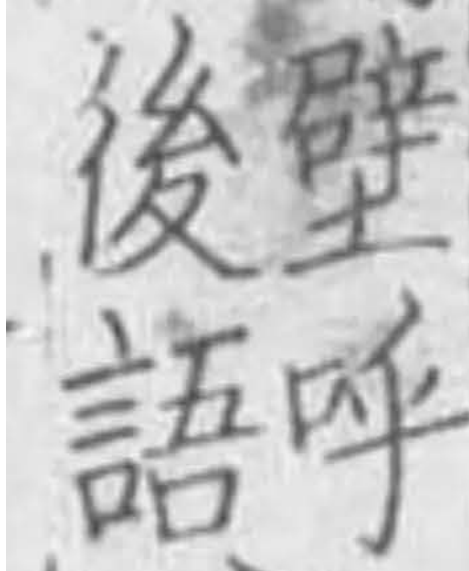 壁呼
後語